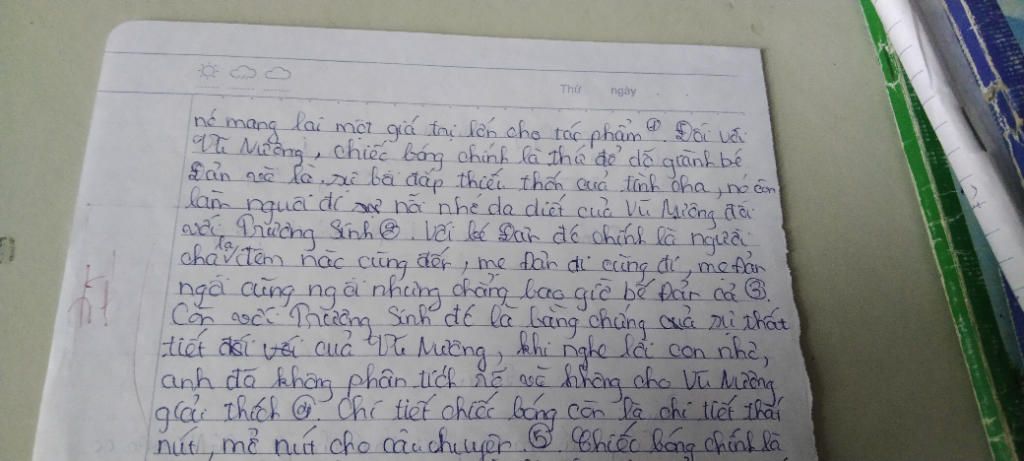 Thứ ngày
nó mang lại một giá trị lớn cho tác phẩm ①. Đối với
Vũ Nương, chiếc bóng chính là thứ để dỗ giành bé
Đản và là sự bù đắp thiếu thốn của tình cha, nó còn
làm nguôi đi nỗi nhớ da diết của Vũ Nương đối
với Trương Sinh ②. Với bé Đản đó chính là người
cha lạ, đêm nào cũng đến, mẹ Đản đi cũng đi, mẹ Đản
ngồi cũng ngồi nhưng chẳng bao giờ bế Đản cả ③.
Còn với Trương Sinh đó là bằng chứng của sự thất
tiết đối với của Vũ Nương, khi nghe lời con nhỏ,
anh đã không phân tích nó và không cho Vũ Nương
giải thích ④. Chi tiết chiếc bóng còn là chi tiết thắt
nút, mở nút cho câu chuyện ⑤. Chiếc bóng chính là